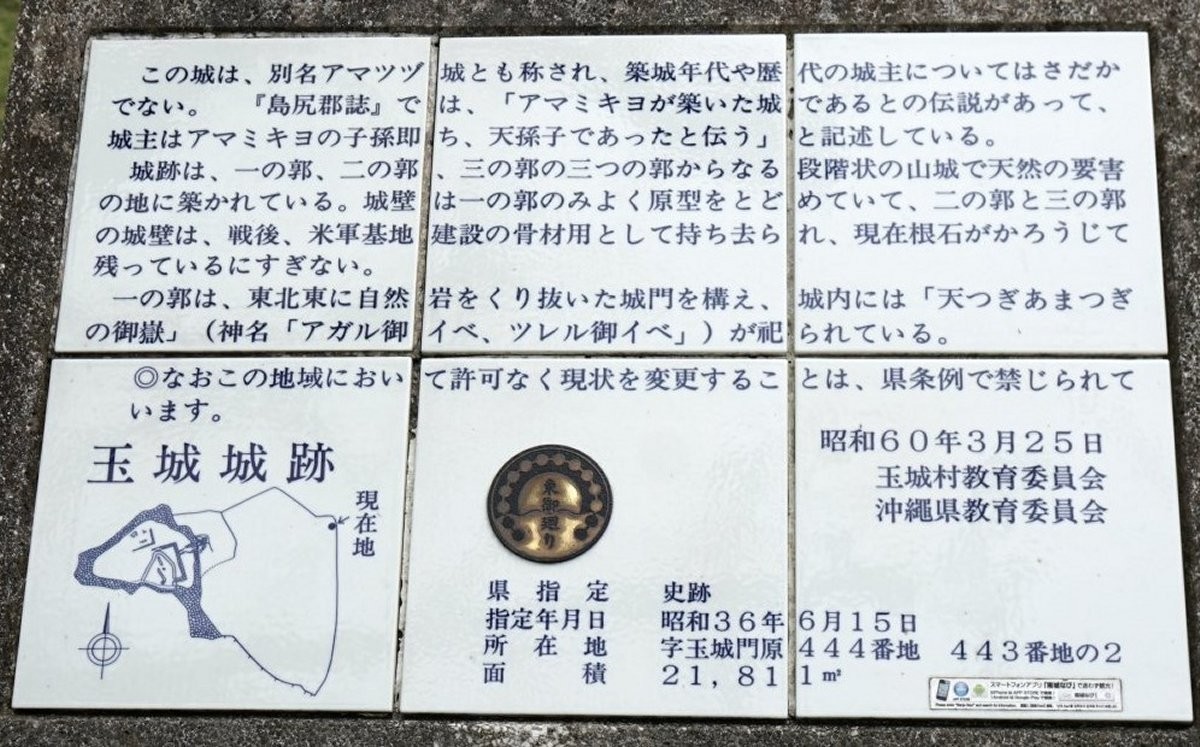 この城は、別名アマツヅ城とも称され、築城年代や歴代の城主についてはさだか
でない。　『島尻郡誌』では、「アマミキヨが築いた城であるとの伝説があって、
城主はアマミキヨの子孫即ち、天孫子であったと伝う」と記述している。
城跡は、一の郭、二の郭、三の郭の三つの郭からなる段階状の山城で天然の要害
の地に築かれている。城壁は一の郭のみよく原型をとどめていて、二の郭と三の郭
の城壁は、戦後、米軍基地建設の骨材用として持ち去られ、現在根石がかろうじて
残っているにすぎない。
一の郭は、東北東に自然岩をくり抜いた城門を構え、城内には「天つぎあまつぎ
の御嶽」（神名「アガル御イベ、ツレル御イベ」）が祀られている。
◎なおこの地域において許可なく現状を変更することは、県条例で禁じられて
います。
玉城城跡
現在地
東御廻り
昭和60年3月25日
玉城村教育委員会
沖縄県教育委員会
県指定　史跡
指定年月日　昭和36年6月15日
所在地　字玉城門原444番地　443番地の2
面積　21,811㎡
スマートフォンアプリ「南城なび」で道わず観光!